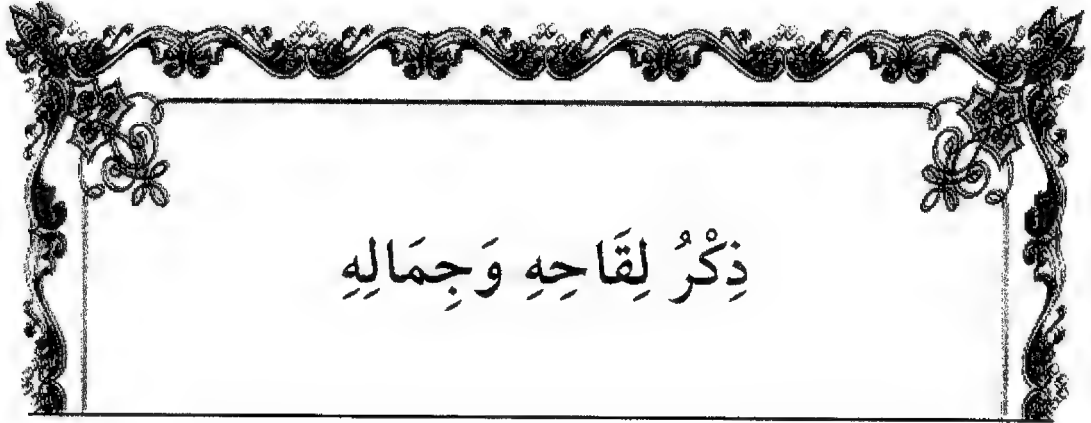 ذِكْرُ لِقَاحِهِ وَجِمَالِهِ